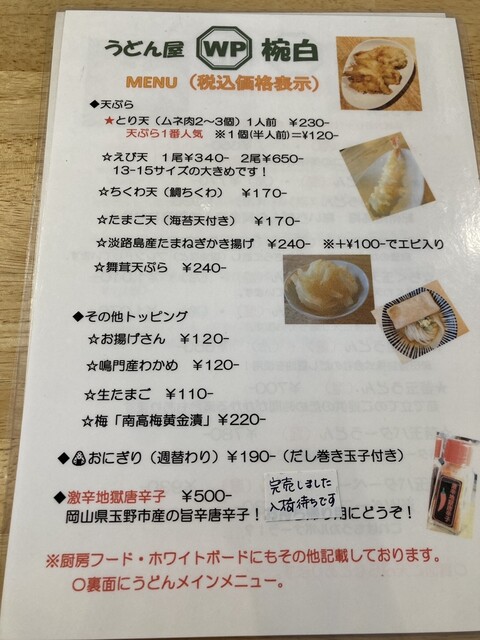 うどん屋 WP 椀白
MENU（税込価格表示）
◆天ぷら
★とり天（ムネ肉2〜3個）1人前 ¥230-
天ぷら1番人気 ※1個(半人前)＝¥120-
☆えび天 1尾¥340- 2尾¥650-
13-15サイズの大きめです！
☆ちくわ天（鯛ちくわ） ¥170-
☆たまご天（海苔天付き）¥170-
☆淡路島産たまねぎかき揚げ ¥240- ※＋¥100-でエビ入り
☆舞茸天ぷら ¥240-
◆その他トッピング
☆お揚げさん ¥120-
☆鳴門産わかめ ¥120-
☆生たまご ¥110-
☆梅「南高梅黄金漬」¥220-
◆🍙おにぎり（週替わり）¥190-（だし巻き玉子付き）
◆激辛地獄唐辛子 ¥500-
完売しました
入荷待ちです
岡山県玉野市産の旨辛唐辛子！ 用にどうぞ！
※厨房フード・ホワイトボードにもその他記載しております。
〇裏面にうどんメインメニュー。